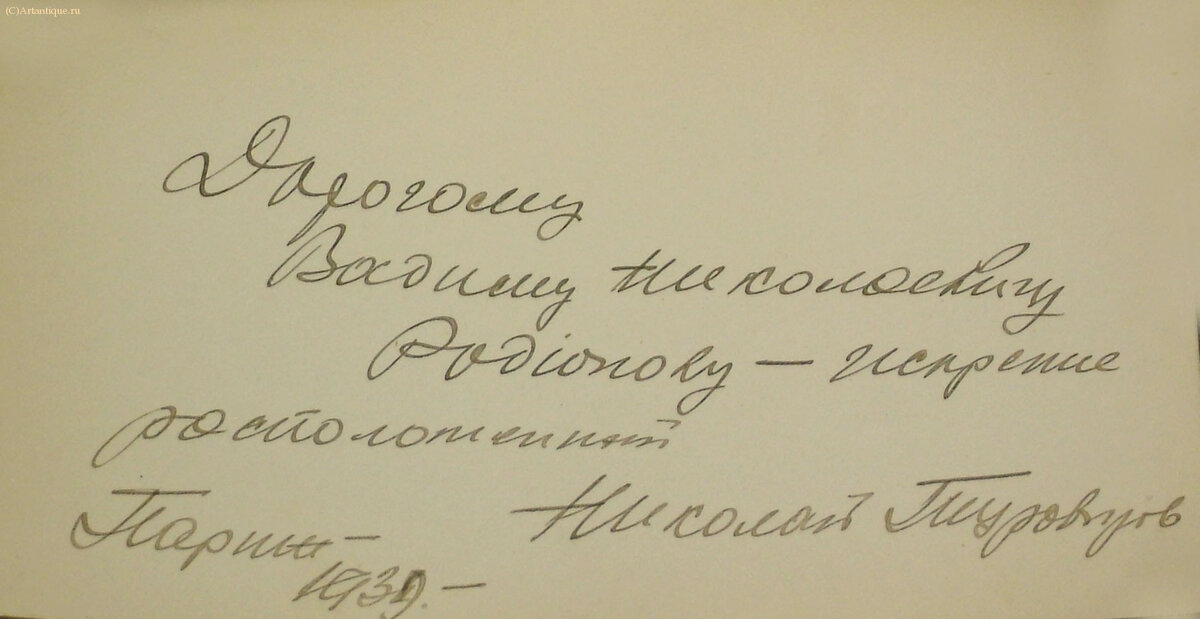 (C)Artantique.ru
Дорогому
Вадиму Николаевичу
Родіонову — искренне
расположенный
Николай Туроверов
Париж —
1939. —